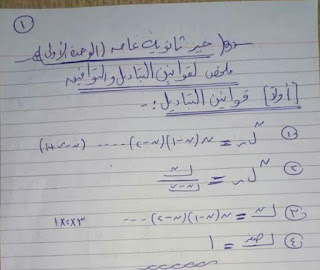 ①
جبر ثانوية عامه (الوحدة الأولى)
ملخص لقوانين التباديل والتوافيق
[أولاً] قوانين التباديل :-
① ⁿلر = ن(ن-١)(ن-٢) ..... (ن-ر+١)
② ⁿلر = لن / لن-ر
③ لن = ن(ن-١)(ن-٢) ..... ٣×٢×١
④ لصفر = ١